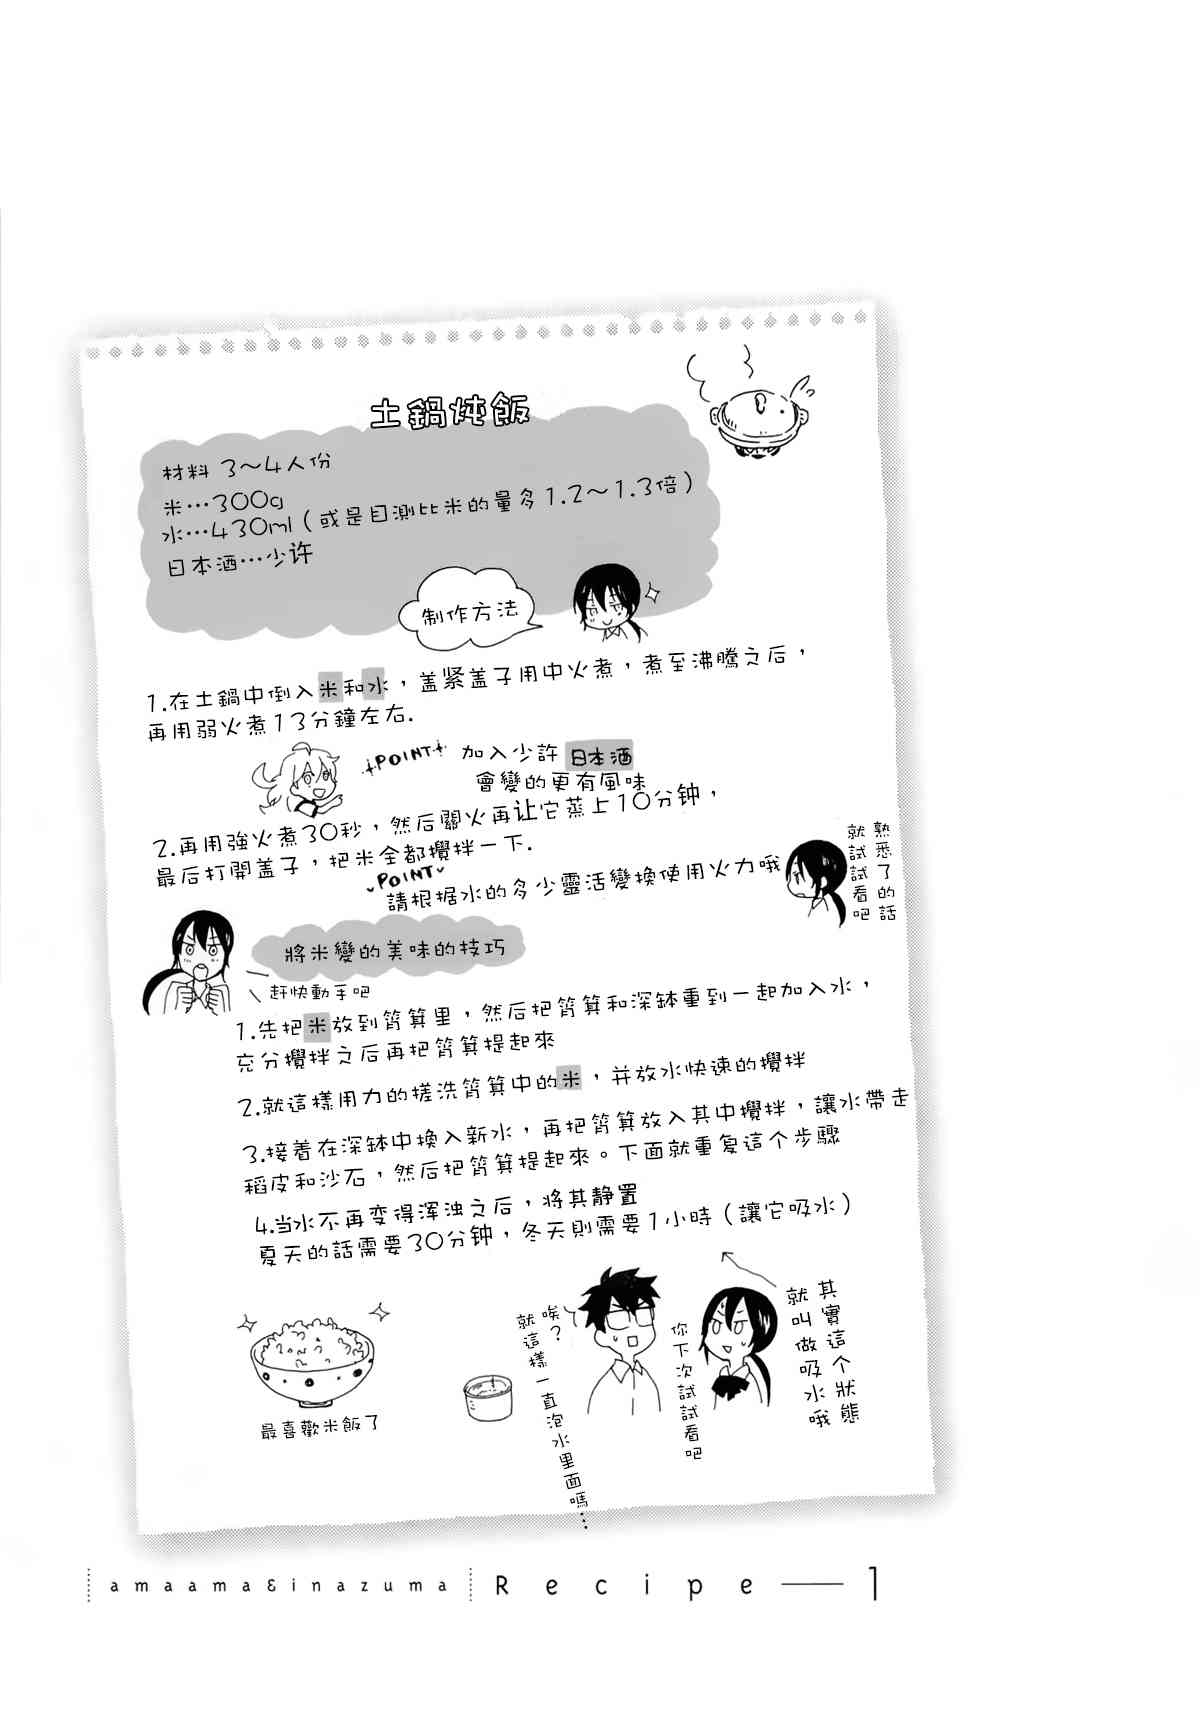 土鍋炖飯
材料 3～4人份
米…300g
水…430ml（或是目測比米的量多1.2～1.3倍）
日本酒…少许
制作方法
1.在土鍋中倒入米和水，盖紧盖子用中火煮，煮至沸騰之后，
再用弱火煮13分鐘左右.
POINT
加入少許 日本酒
會變的更有風味
2.再用強火煮30秒，然后關火再让它蒸上10分钟，
最后打開盖子，把米全都攪拌一下.
POINT
請根据水的多少靈活變換使用火力哦
熟悉了的話
就試試看吧
將米變的美味的技巧
赶快動手吧
1.先把米放到筲箕里，然后把筲箕和深鉢重到一起加入水，
充分攪拌之后再把筲箕提起來
2.就這樣用力的搓洗筲箕中的米，并放水快速的攪拌
3.接着在深鉢中換入新水，再把筲箕放入其中攪拌，讓水帶走
稻皮和沙石，然后把筲箕提起來。下面就重复這个步驟
4.当水不再变得浑浊之后，將其静置
夏天的話需要30分钟，冬天則需要1小時（讓它吸水）
其實這个狀態
就叫做吸水哦
你下次試試看吧
唉？
就這樣一直泡水里面嗎…
最喜歡米飯了
amaama&inazuma
Recipe — 1